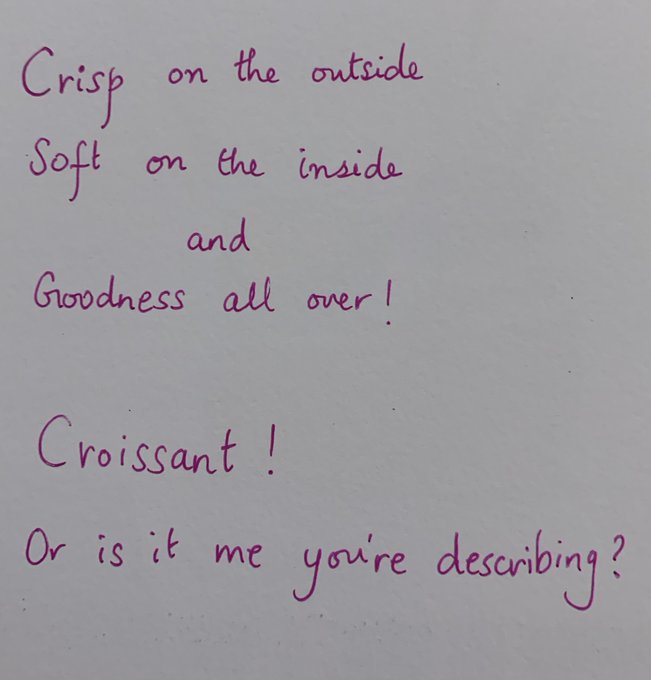 Crisp on the outside
Soft on the inside
and
Goodness all over!
Croissant!
Or is it me you're describing?